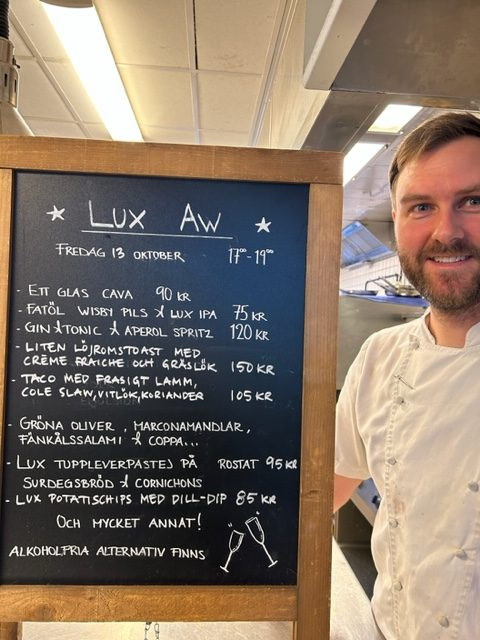 LUX AW
FREDAG 13 OKTOBER 17⁰⁰-19⁰⁰
- ETT GLAS CAVA 90 KR
- FATÖL WISBY PILS & LUX IPA 75 KR
- GIN & TONIC & APEROL SPRITZ 120 KR
- LITEN LÖJROMSTOAST MED
CRÈME FRAICHE OCH GRÄSLÖK 150 KR
- TACO MED FRASIGT LAMM,
COLE SLAW, VITLÖK, KORIANDER 105 KR
- GRÖNA OLIVER, MARCONAMANDLAR,
FÄNKÅLSSALAMI & COPPA...
- LUX TUPPLEVERPASTEJ PÅ ROSTAT 95 KR
SURDEGSBRÖD & CORNICHONS
- LUX POTATISCHIPS MED DILL-DIP 85 KR
OCH MYCKET ANNAT!
ALKOHOLFRIA ALTERNATIV FINNS